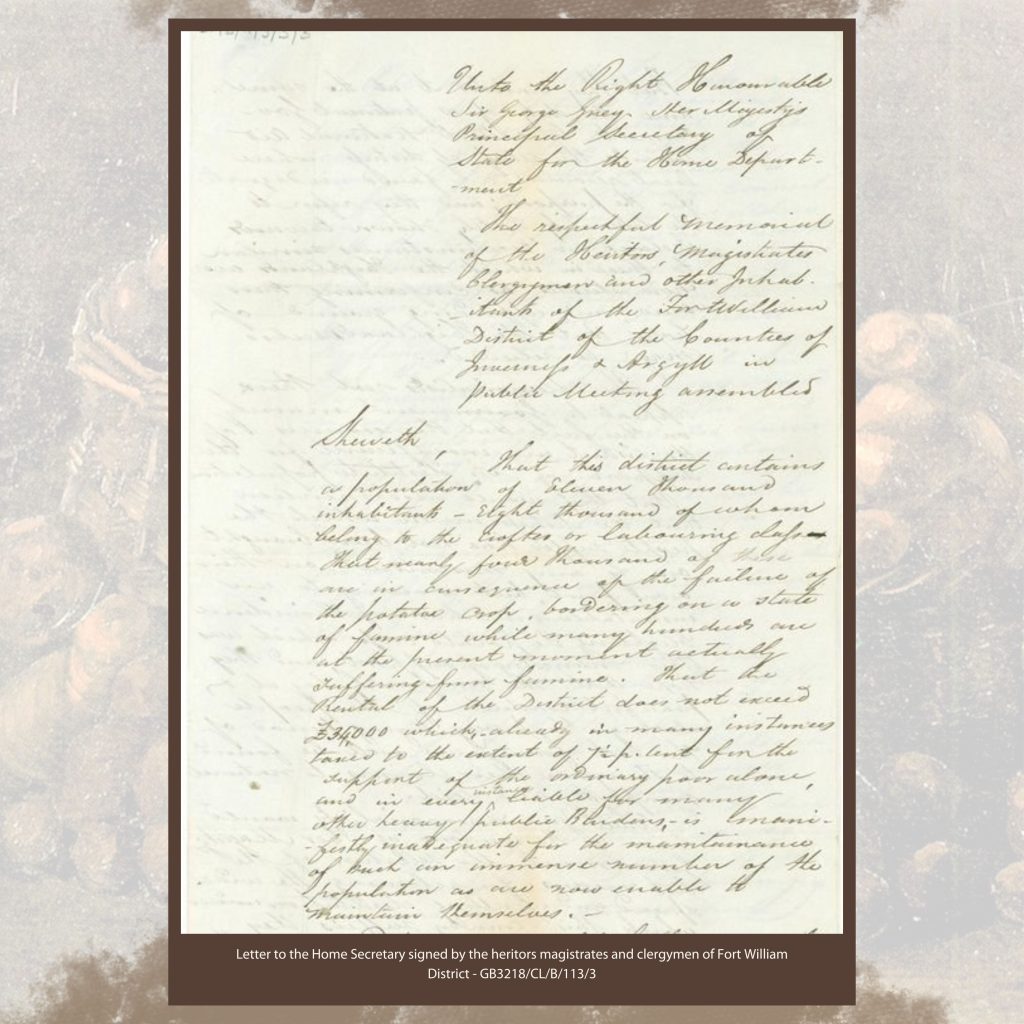 Unto the Right Honourable
Sir George Grey Her Majestys
Principal Secretary of
State for the Home Depart-
-ment
The respectful Memorial
of the Heritors, Magistrates
Clergymen and other Inhab-
-itants of the Fort William
District of the Counties of
Inverness & Argyll in
Public Meeting assembled
Sheweth,
That this district contains
a population of Eleven thousand
inhabitants - Eight thousand of whom
belong to the Crofter or labouring class
That nearly four thousand of these
are in consequence of the failure of
the potatoe crop, bordering on a state
of famine while many hundreds are
at the present moment actually
suffering from famine. That the
Rental of the District does not exceed
which, already in many instances
taxed to the extent of 7½ p. Cent for the
support of the ordinary poor alone,
and in every instance liable for many
other heavy public Burdens, - is mani-
-festly inadequate for the maintainance
of such an immense number of the
population as are now unable to
maintain themselves. -
Letter to the Home Secretary signed by the heritors magistrates and clergymen of Fort William
District - GB3218/CL/B/113/3